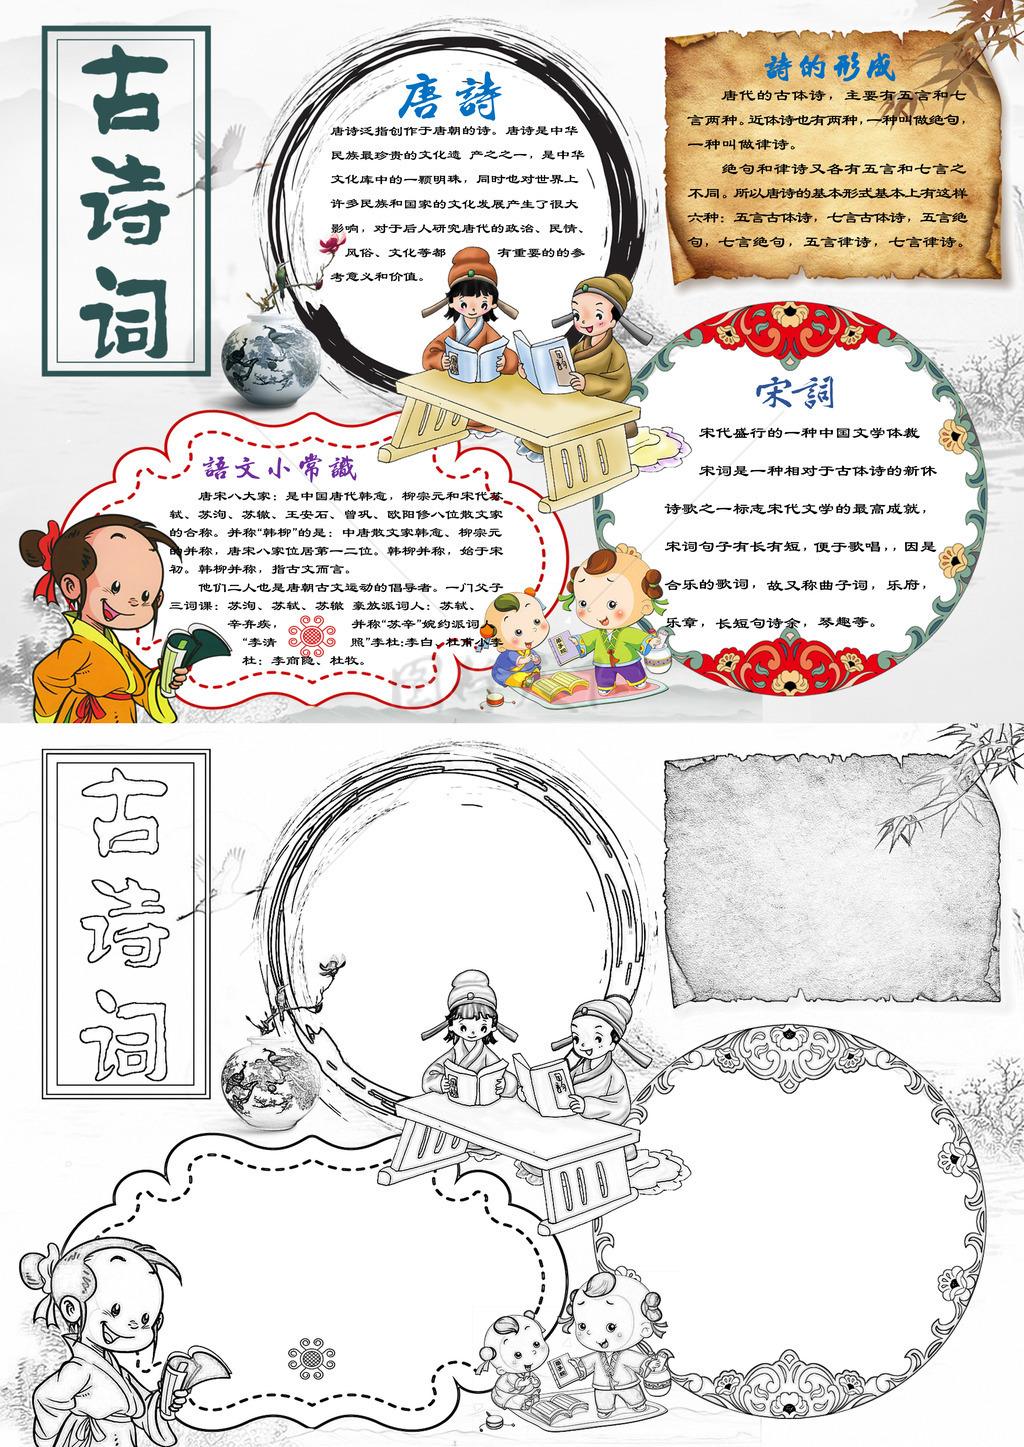 古诗词
唐詩
唐诗泛指创作于唐朝的诗。唐诗是中华
民族最珍贵的文化遗 产之之一，是中华
文化库中的一颗明珠，同时也对世界上
许多民族和国家的文化发展产生了很大
影响，对于后人研究唐代的政治、民情、
风俗、文化等都 有重要的的参
考意义和价值。
詩的形成
唐代的古体诗，主要有五言和七
言两种。近体诗也有两种，一种叫做绝句，
一种叫做律诗。
绝句和律诗又各有五言和七言之
不同。所以唐诗的基本形式基本上有这样
六种：五言古体诗，七言古体诗，五言绝
句，七言绝句，五言律诗，七言律诗。
宋詞
宋代盛行的一种中国文学体裁
宋词是一种相对于古体诗的新休
诗歌之一标志宋代文学的最高成就，
宋词句子有长有短，便于歌唱，，因是
合乐的歌词，故又称曲子词，乐府，
乐章，长短句诗余，琴趣等。
語文小常識
唐宋八大家：是中国唐代韩愈，柳宗元和宋代苏
轼、苏洵、苏辙、王安石、曾巩、欧阳修八位散文家
的合称。并称“韩柳”的是：中唐散文家韩愈、柳宗元
的并称，唐宋八家位居第一二位。韩柳并称，始于宋
初。韩柳并称，指古文而言。
他们二人也是唐朝古文运动的倡导者。一门父子
三词课：苏洵、苏轼、苏辙 豪放派词人：苏轼、
辛弃疾， 并称“苏辛”婉约派词人
“李清 照”李杜:李白、杜甫小李
杜：李商隐、杜牧。
古诗词